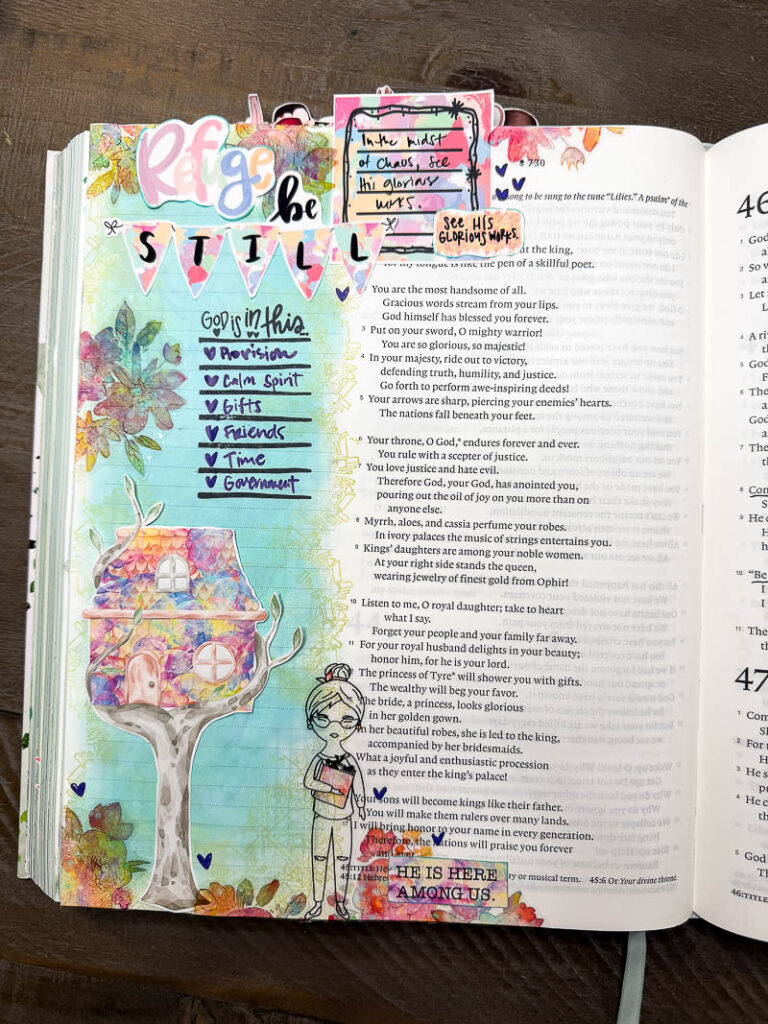 Refuge
be
STILL
In the midst
of chaos, see
His glorious
works.
SEE HIS
GLORIOUS WORKS.
God is in this...
Provision
Calm Spirit
Gifts
Friends
Time
Government
HE IS HERE
AMONG US.
730
song to be sung to the tune “Lilies.” A psalm* of the
the king,
for my tongue is like the pen of a skillful poet.
You are the most handsome of all.
Gracious words stream from your lips.
God himself has blessed you forever.
3 Put on your sword, O mighty warrior!
You are so glorious, so majestic!
4 In your majesty, ride out to victory,
defending truth, humility, and justice.
Go forth to perform awe-inspiring deeds!
5 Your arrows are sharp, piercing your enemies’ hearts.
The nations fall beneath your feet.
6 Your throne, O God,* endures forever and ever.
You rule with a scepter of justice.
7 You love justice and hate evil.
Therefore God, your God, has anointed you,
pouring out the oil of joy on you more than on
anyone else.
8 Myrrh, aloes, and cassia perfume your robes.
In ivory palaces the music of strings entertains you.
9 Kings’ daughters are among your noble women.
At your right side stands the queen,
wearing jewelry of finest gold from Ophir!
10 Listen to me, O royal daughter; take to heart
what I say.
Forget your people and your family far away.
11 For your royal husband delights in your beauty;
honor him, for he is your lord.
The princess of Tyre* will shower you with gifts.
The wealthy will beg your favor.
The bride, a princess, looks glorious
in her golden gown.
In her beautiful robes, she is led to the king,
accompanied by her bridesmaids.
What a joyful and enthusiastic procession
as they enter the king’s palace!
Your sons will become kings like their father.
You will make them rulers over many lands.
17 I will bring honor to your name in every generation.
Therefore, the nations will praise you forever
and ever.
45:TITLE He
45:12 Hebre
ry or musical term. 45:6 Or Your divine throne.
46
1 God
2 So w
3 Let
4 A ri
5 God
6 The
7 The
8 Com
9 He c
10 “Be
11 The
47
1 Com
2 For
3 He s
4 He c
5 God
46:TITLE